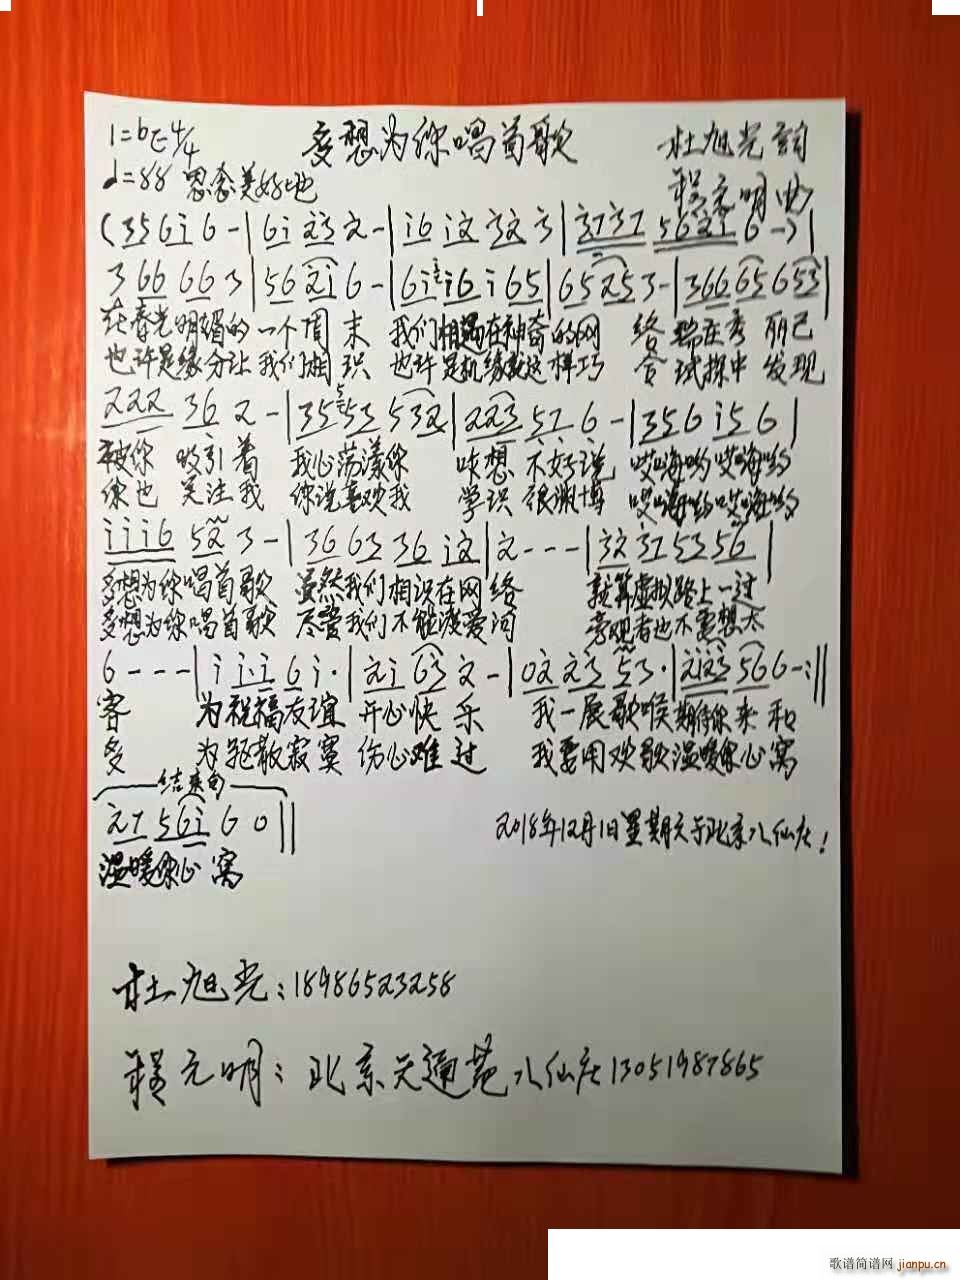 1=bE 4/4 多想为你唱首歌 杜旭光词
♩=88 思念美好地 程元明曲
(3 5 6 i 6 - | 6 i 2 3 2 - | i 6 i 2 3 2 3 | 3 1 3 1 5 6 2 1 6 -) |
3 6 6 6 6 3 | 5 6 2 i 6 - | 6 i i 6 i 6 5 | 6 5 2 5 3 - | 3 6 6 6 5 6 5 3 |
在春光明媚的一个周末 我们相遇在神奇的网络 端庄秀丽已
也许是缘分让我们相识 也许是机缘就这样巧合 试探中发现
2 2 2 3 6 2 - | 3 5 5 3 5 3 2 | 2 2 3 5 1 6 - | 3 5 6 i 5 6 |
被你吸引着 我心荡漾你 咋想不好说 哎嗨哟哎嗨哟
你也关注我 你说喜欢我 学识很渊博 哎嗨哟哎嗨哟
i i i 6 5 2 3 - | 3 6 6 3 3 6 i 2 | 2 - - - | 3 2 3 1 5 3 5 6 |
多想为你唱首歌 虽然我们相识在网络 就算虚拟路上一过
多想为你唱首歌 尽管我们不能渡爱河 旁观者也不要想太
6 - - - | i i i 6 i · | 2 i 6 3 2 - | 0 2 2 3 5 3 · | 2 i 2 3 5 6 6 - :||
客 为祝福友谊开心快乐 我一展歌喉期待你来和
多 为驱散寂寞伤心难过 我要用欢歌温暖你心窝
结束句
2 1 5 6 i 6 0 ||
2018年12月1日星期六于北京八仙庄!
温暖你心窝
杜旭光:18986523258
程元明:北京天通苑八仙庄13051987865
歌谱简谱网 jianpu.cn